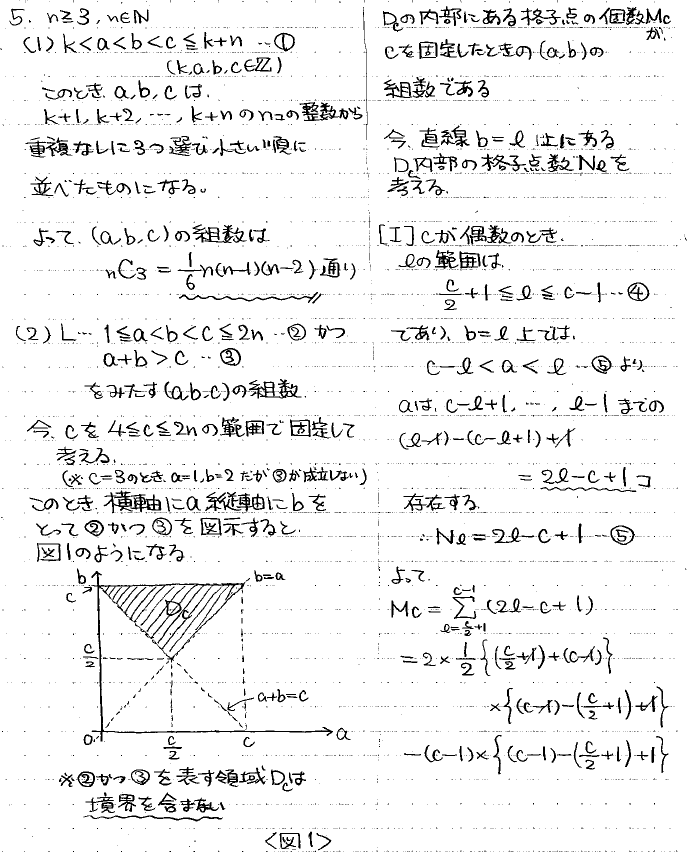 5. n≧3, n∈ℕ
(1) k<a<b<c≦k+n …①
(k,a,b,c∈ℤ)
このとき a,b,c は、
k+1, k+2, …, k+n のnコの整数から
重複なしに3つ選び小さい順に
並べたものになる。
よって、(a,b,c)の組数は
nC3 = 1/6 n(n-1)(n-2)通り
(2) L… 1≦a<b<c≦2n …② かつ
a+b>c …③
をみたす(a,b,c)の組数
今、cを4≦c≦2nの範囲で固定して
考える。
(※ c=3のとき、a=1,b=2だが③が成立しない)
このとき、横軸にa縦軸にbを
とって②かつ③を図示すると、
図1のようになる
b
c
b=a
Dc
c/2
a+b=c
0
c/2
c
a
※②かつ③を表す領域Dcは
境界を含まない
<図1>
Dcの内部にある格子点の個数Mcが、
cを固定したときの(a,b)の
組数である
今、直線b=l上にある
Dc内部の格子点数Nlを
考える。
[I] cが偶数のとき、
lの範囲は、
c/2+1≦l≦c-1 …④
であり、b=l上では、
c-l<a<l …⑤より、
aは、c-l+1, …, l-1までの
(l-1)-(c-l+1)+1
=2l-c+1コ
存在する
∴Nl=2l-c+1 …⑤
よって、
Mc=Σ[l=c/2+1, c-1](2l-c+1)
=2×1/2{(c/2+1)+(c-1)}
×{(c-1)-(c/2+1)+1}
-(c-1)×{(c-1)-(c/2+1)+1}